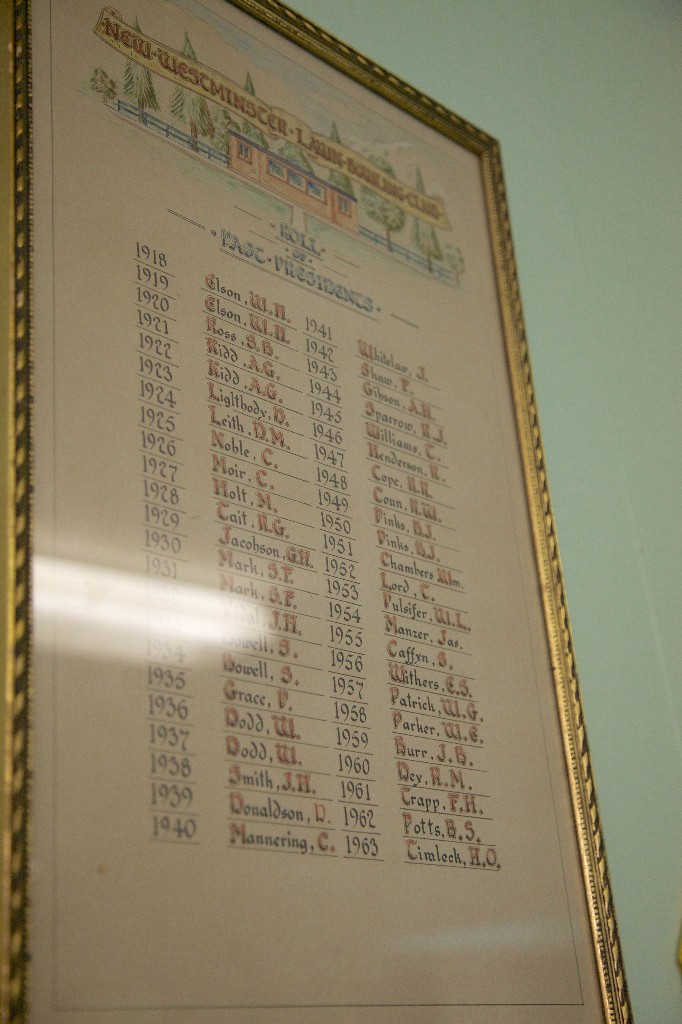 NEW·WESTMINSTER·LAWN·BOWLING·CLUB
·ROLL·
·OF·
·PAST·PRESIDENTS·
1918 Elson, W.H. 1941 Whitelaw, J.
1919 Elson, W.H. 1942 Shaw, F.
1920 Ross, S.B. 1943 Gibson, A.H.
1921 Kidd, A.G. 1944 Sparrow, R.J.
1922 Kidd, A.G. 1945 Williams, C.
1923 Ligthbody, D. 1946 Henderson, R.
1924 Leith, D.M. 1947 Cope, R.R.
1925 Noble, C. 1948 Conn, R.W.
1926 Moir, C. 1949 Pinks, B.J.
1927 Holt, M. 1950 Pinks, B.J.
1928 Tait, R.G. 1951 Chambers Wm.
1929 Jacobson, G.H. 1952 Lord, C.
1930 Mark, S.F. 1953 Pulsifer, W.L.
1931 Mark, S.F. 1954 Manzer, Jas.
J.H. 1955 Caffyn, S.
Howell, S. 1956 Withers, E.S.
1934 Howell, S. 1957 Patrick, W.G.
1935 Grace, P. 1958 Parker, W.E.
1936 Dodd, W. 1959 Burr, J.B.
1937 Dodd, W. 1960 Dey, R.M.
1938 Smith, J.H. 1961 Trapp, F.H.
1939 Donaldson, D. 1962 Potts, B.S.
1940 Mannering, C. 1963 Timleck, H.O.